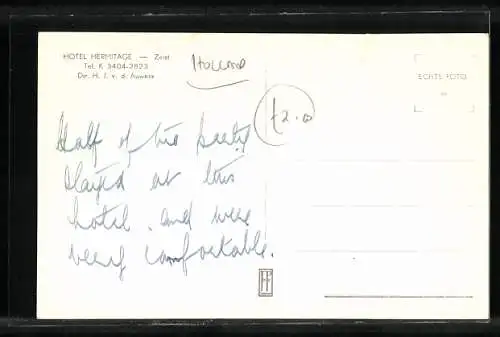 HOTEL HERMITAGE — Zeist
Tel. K 3404-2823
Dir. H. J. v. d.
Holland
ECHTE FOTO
Half of the party
stayed at this
hotel. and were
very comfortable.